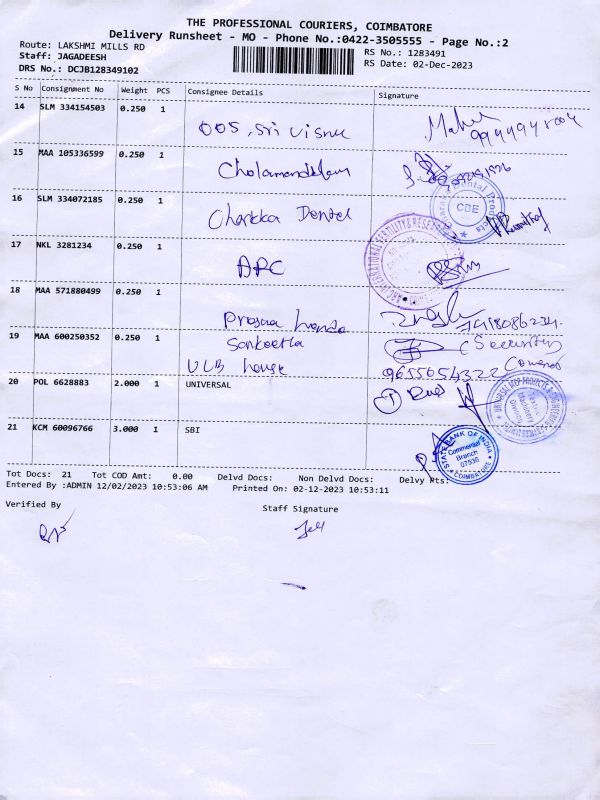 THE PROFESSIONAL COURIERS, COIMBATORE
Delivery Runsheet - MO - Phone No.:0422-3505555 - Page No.:2
Route: LAKSHMI MILLS RD
RS No.: 1283491
Staff: JAGADEESH
RS Date: 02-Dec-2023
DRS No.: DCJB128349102
S No Consignment No Weight PCS Consignee Details Signature
14 SLM 334154503 0.250 1
005, Sri Visnu
15 MAA 105336599 0.250 1
Cholamandalam
16 SLM 334072185 0.250 1
Charkka Dental
CBE
17 NKL 3281234 0.250 1
APC
18 MAA 571880499 0.250 1
19 MAA 600250352 0.250 1
Sankeetha
(Security
ULB house
9655054322
20 POL 6628883 2.000 1 UNIVERSAL
21 KCM 60096766 3.000 1 SBI
STATE BANK OF INDIA
Commercial
Branch
07536
COIMBATORE
Tot Docs: 21 Tot COD Amt: 0.00 Delvd Docs: Non Delvd Docs: Delvy Pts:
Entered By :ADMIN 12/02/2023 10:53:06 AM Printed On: 02-12-2023 10:53:11
Verified By
Staff Signature